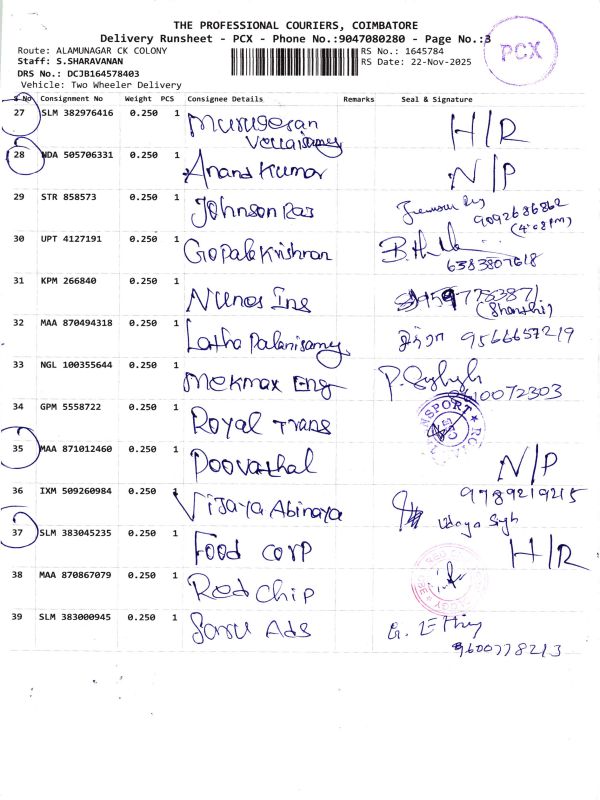 THE PROFESSIONAL COURIERS, COIMBATORE
Delivery Runsheet - PCX - Phone No.:9047080280 - Page No.:3
PCX
Route: ALAMUNAGAR CK COLONY
RS No.: 1645784
Staff: S.SHARAVANAN
RS Date: 22-Nov-2025
DRS No.: DCJB164578403
Vehicle: Two Wheeler Delivery
S No Consignment No Weight PCS Consignee Details Remarks Seal & Signature
27 SLM 382976416 0.250 1 Murugesan H/R
Vellaisamy
28 NDA 505706331 0.250 1 Anand Kumar N/P
29 STR 858573 0.250 1 Johnson Raj 9092686862
(4:08PM)
30 UPT 4127191 0.250 1 Gopala Krishnan
6383807618
31 KPM 266840 0.250 1 Nunes Ins
(Shanthi)
32 MAA 870494318 0.250 1 Latha Palanisamy 9566657219
33 NGL 100355644 0.250 1 Mekmax Eng
34 GPM 5558722 0.250 1 Royal Trans
35 MAA 871012460 0.250 1 Poovathal N/P
9789219215
36 IXM 509260984 0.250 1 Vijaya Abinaya
37 SLM 383045235 0.250 1 Food corp H/R
38 MAA 870867079 0.250 1 Red Chip
39 SLM 383000945 0.250 1 Sonu Ads
9600778213